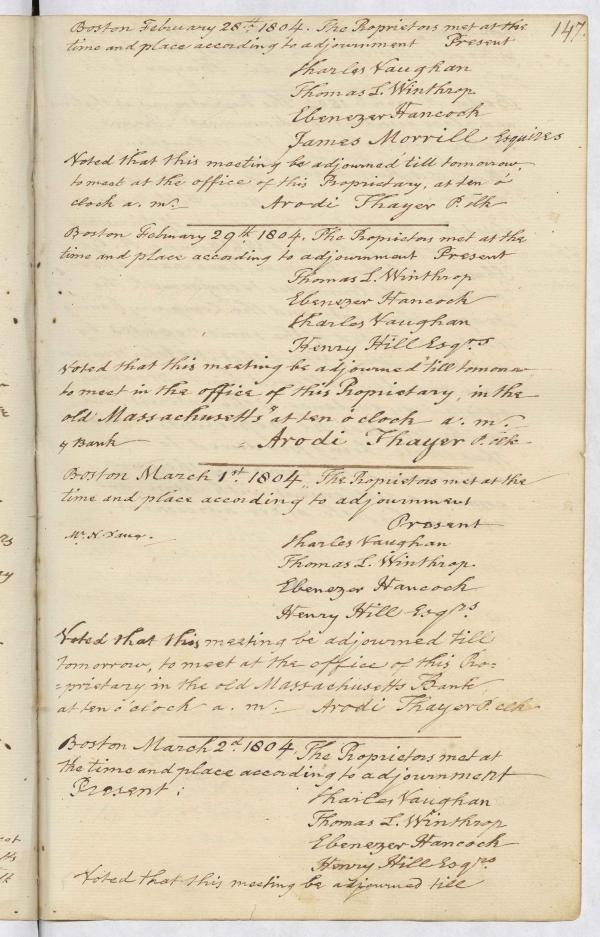 147.
Boston February 28th. 1804. The Proprietors met at the
time and place according to adjournment Present
Charles Vaughan
Thomas L. Winthrop
Ebenezer Hancock
James Morrill Esquires
Voted that this meeting be adjourned till tomorrow,
to meet at the office of this Proprietary, at ten o'
clock a. m. Arodi Thayer P. clk
Boston February 29th. 1804. The Proprietors met at the
time and place according to adjournment Present
Thomas L. Winthrop
Ebenezer Hancock
Charles Vaughan
Henry Hill Esqrs
Voted that this meeting be adjourned till tomorrow
to meet in the office of this Proprietary, in the
old Massachusetts " at ten o'clock a. m.
" Bank Arodi Thayer P. clk
Boston March 1st. 1804. The Proprietors met at the
time and place according to adjournment
Present
Mr. N. Vaur.
Charles Vaughan
Thomas L. Winthrop.
Ebenezer Hancock
Henry Hill Esqrs.
Voted that this meeting be adjourned till
tomorrow, to meet at the office of this Pro=
=prietary in the old Massachusetts Bank,
at ten o'clock a. m. Arodi Thayer P. clk
Boston March 2d. 1804. The Proprietors met at
the time and place according to adjournment
Present:
Charles Vaughan
Thomas L. Winthrop
Ebenezer Hancock
Henry Hill Esqrs
Voted that this meeting be adjourned till